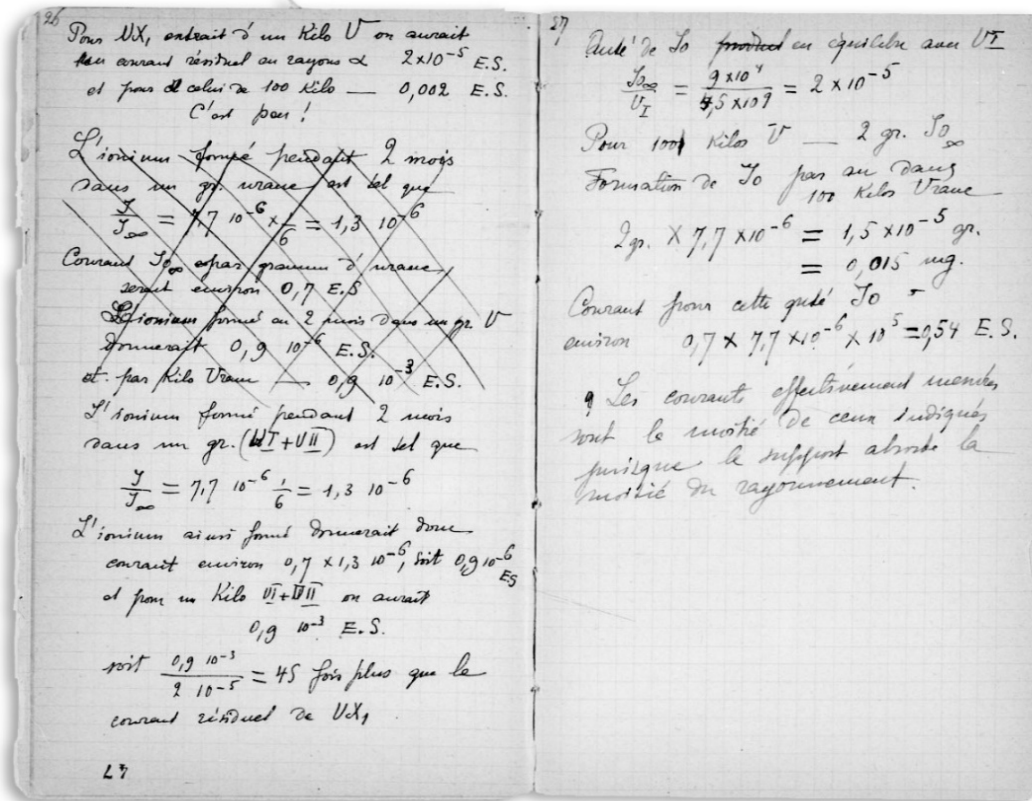 26
Pour UX₁ extrait d'un Kilo U on aurait
un courant résiduel en rayons α 2×10⁻⁵ E.S.
et pour celui de 100 Kilo — 0,002 E.S.
C'est peu !
L'ionium formé pendant 2 mois
dans un gr. urane est tel que
I/I∞ = 7,7 10⁻⁶ × 1/6 = 1,3 10⁻⁶
Courant Io∞ par gramme d'urane
serait environ 0,7 E.S
L'ionium formé en 2 mois dans un gr. U
donnerait 0,9 10⁻⁶ E.S.
et par Kilo Urane — 0,9 10⁻³ E.S.
L'ionium formé pendant 2 mois
dans un gr. (UI + UII) est tel que
I/I∞ = 7,7 10⁻⁶ 1/6 = 1,3 10⁻⁶
L'ionium ainsi formé donnerait donc
courant environ 0,7 × 1,3 10⁻⁶, soit 0,9 10⁻⁶ ES
et pour un Kilo UI + UII on aurait
0,9 10⁻³ E.S.
soit 0,9 10⁻³ / 2 10⁻⁵ = 45 fois plus que le
courant résiduel de UX₁
27
Qnté de Io produit en équilibre avec UI
Io∞/U_I = 9×10⁴ / 4,5×10⁹ = 2×10⁻⁵
Pour 100 Kilos U — 2 gr. Io∞
Formation de Io par an dans
100 Kilos Urane
2 gr. × 7,7 × 10⁻⁶ = 1,5×10⁻⁵ gr.
= 0,015 mg.
Courant pour cette qnté Io
environ 0,7 × 7,7 × 10⁻⁶ × 10⁵ = 0,54 E.S.
Les courants effectivement mesurés
sont la moitié de ceux indiqués
puisque le support absorbe la
moitié du rayonnement.